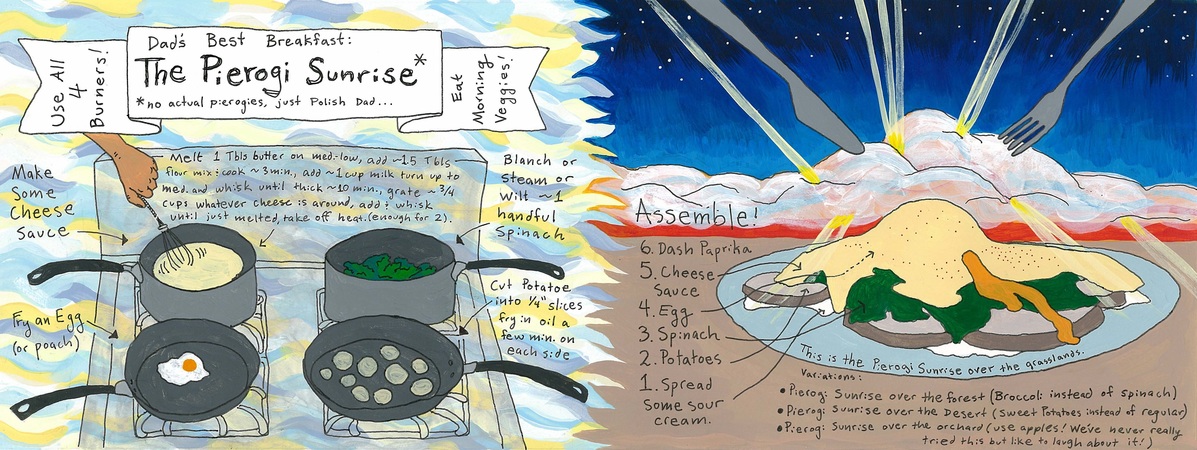 Dad's Best Breakfast:
The Pierogi Sunrise*
*no actual pierogies, just Polish Dad...
Use All
4
Burners!
Eat
Morning
Veggies!
Make
Some
Cheese
Sauce
Melt 1 Tbls butter on med.-low, add ~1.5 Tbls
flour mix & cook ~3 min., add ~1 cup milk turn up to
med. and whisk until thick ~10 min., grate ~3/4
cups whatever cheese is around, add & whisk
until just melted, take off heat. (enough for 2).
Blanch or
Steam or
Wilt ~1
handful
Spinach
Fry an Egg
(or poach)
Cut Potatoe
into 1/4" slices
fry in oil a
few min. on
each side
Assemble!
6. Dash Paprika
5. Cheese
Sauce
4. Egg
3. Spinach
2. Potatoes
1. Spread
some sour
cream.
This is the Pierogi Sunrise over the grasslands.
Variations:
• Pierogi Sunrise over the forest (Broccoli instead of spinach)
• Pierogi Sunrise over the Desert (Sweet Potatoes instead of regular)
• Pierogi Sunrise over the orchard (use apples! We've never really
tried this but like to laugh about it!)